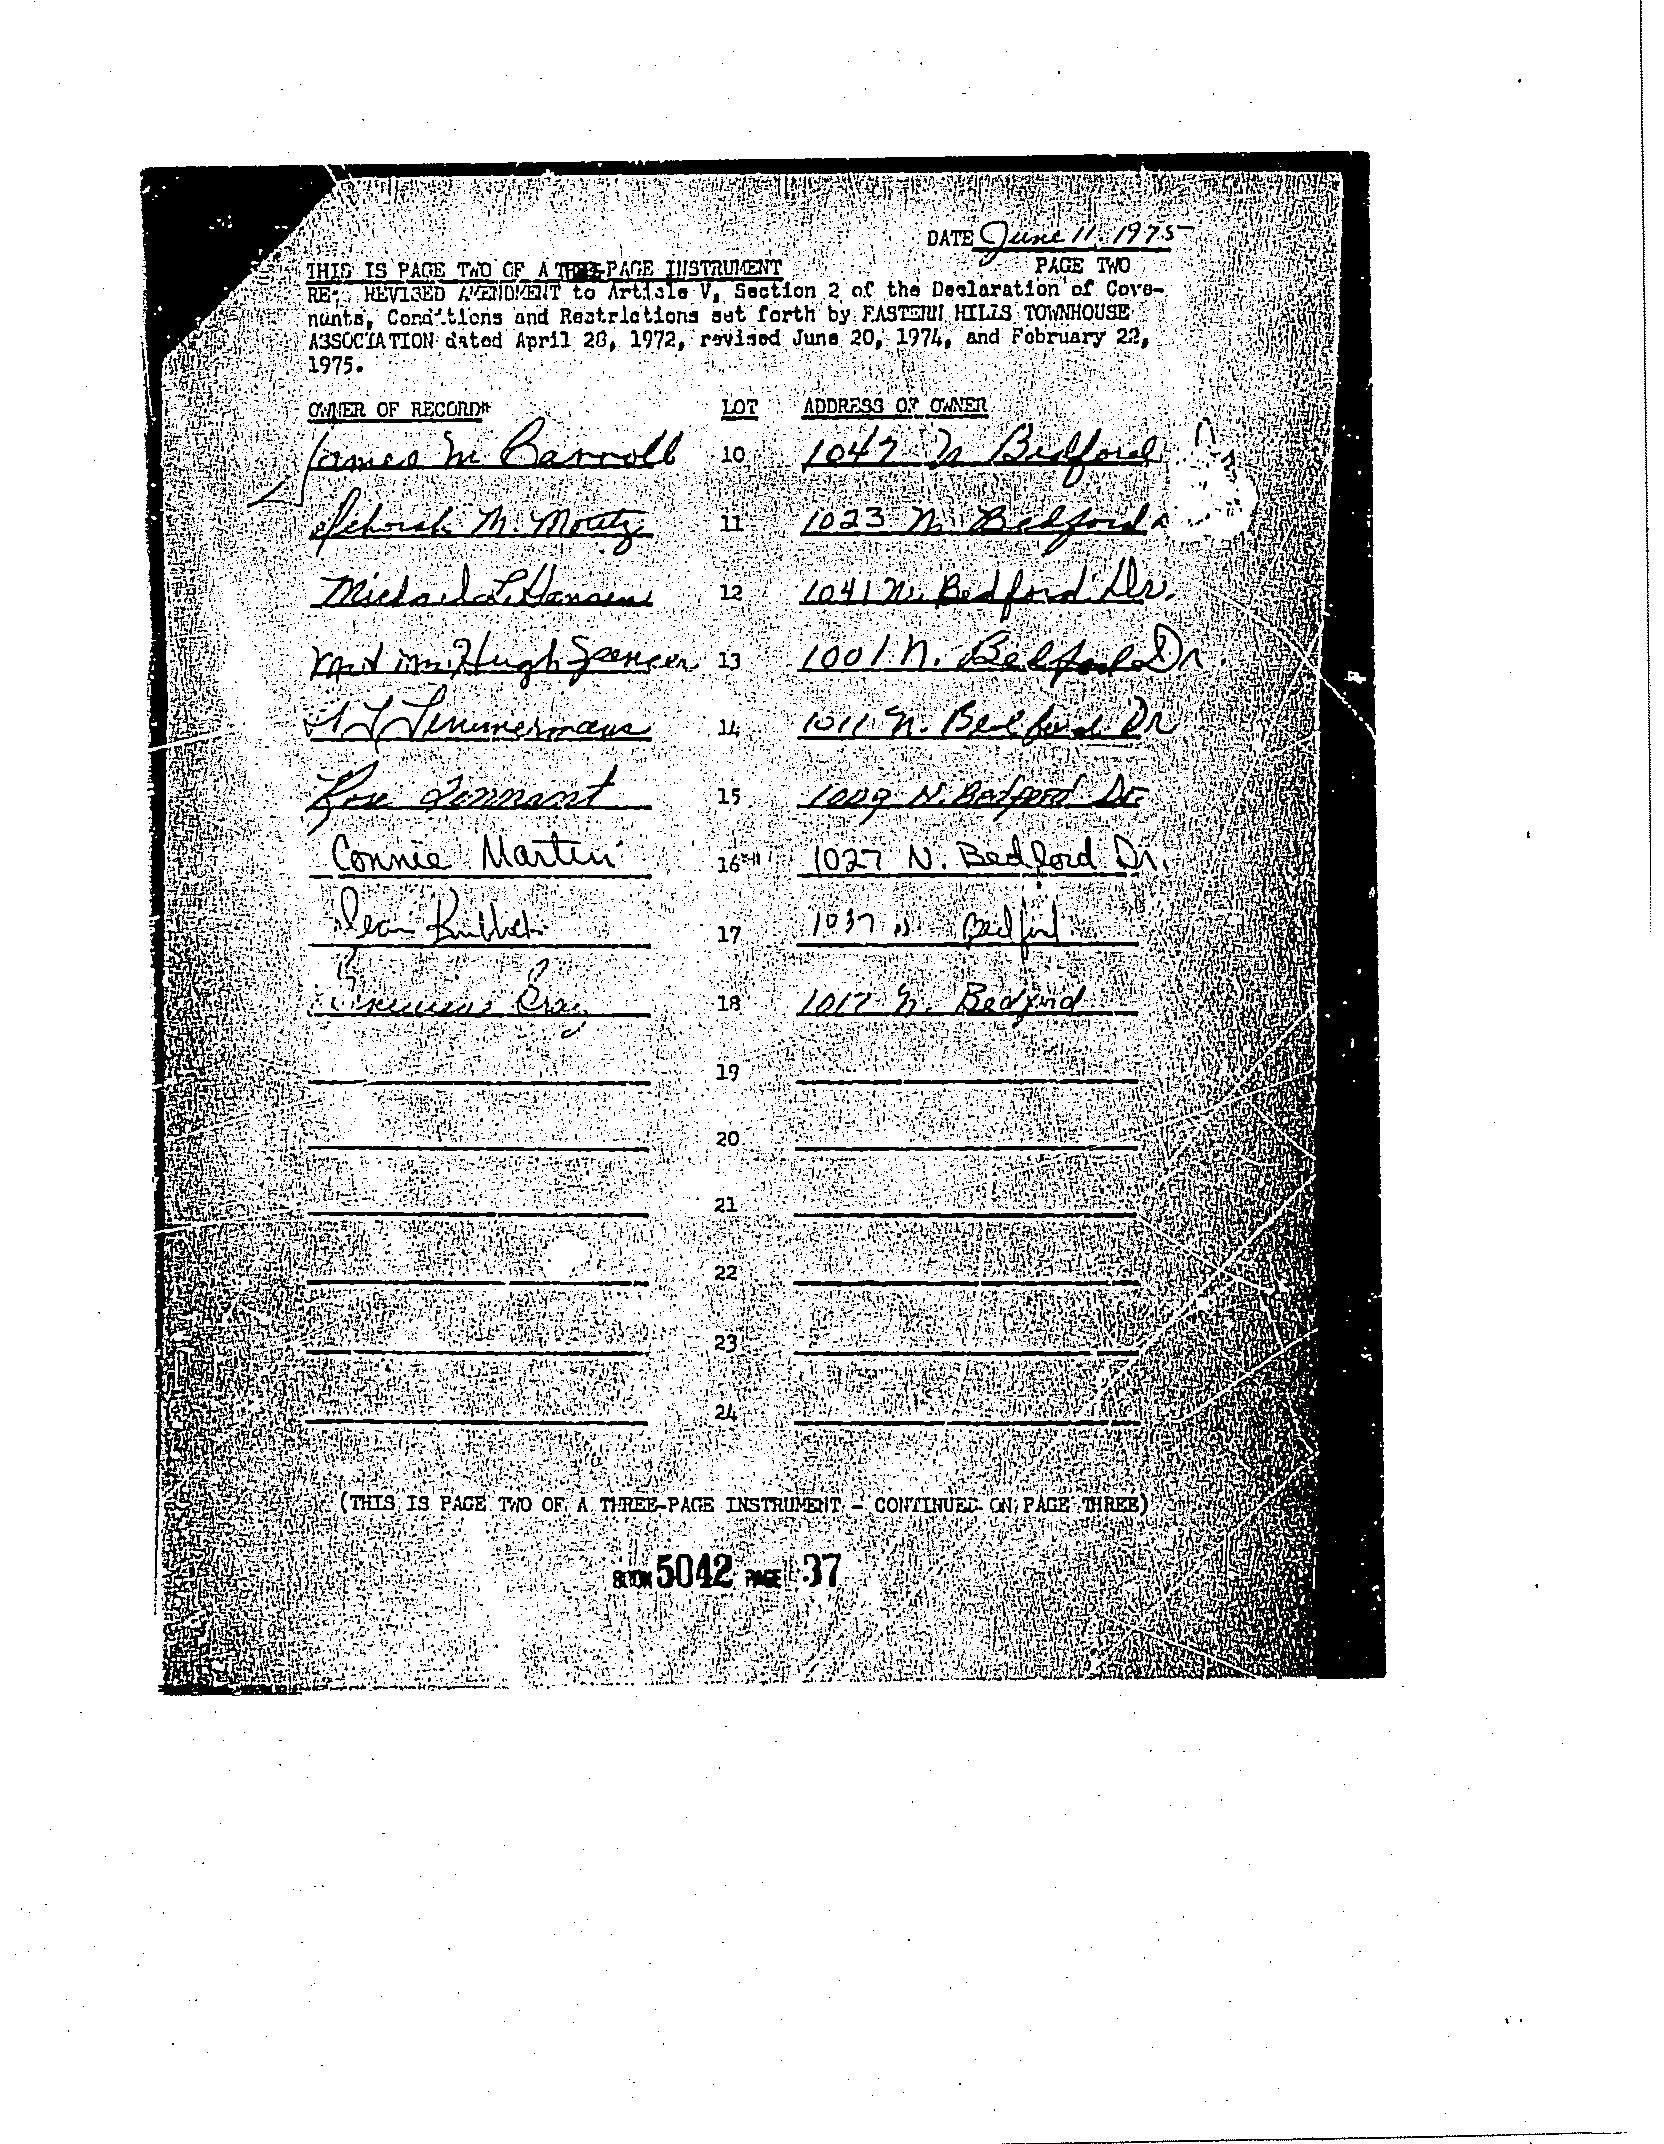 DATE June 11, 1975
THIS IS PAGE TWO OF A THREE-PAGE INSTRUMENT PAGE TWO
RE: REVISED AMENDMENT to Article V, Section 2 of the Declaration of Cove-
nants, Conditions and Restrictions set forth by EASTERN HILLS TOWNHOUSE
ASSOCIATION dated April 28, 1972, revised June 20, 1974, and February 22,
1975.
OWNER OF RECORD* LOT ADDRESS OF OWNER
James M Carroll 10 1047 N Bedford
Deborah M. Moutz 11 1023 N. Bedford
Michael L. Hansen 12 1041 N. Bedford Dr.
Mr & Mrs. Hugh Spencer 13 1001 N. Bedford Dr.
Timmermans 14 1011 N. Bedford Dr
Tennant 15 1009 N. Bedford Dr.
Connie Martin 16 1027 N. Bedford Dr.
Dean 17 1037 N. Bedford
Gray 18 1017 N. Bedford
19
20
21
22
23
24
(THIS IS PAGE TWO OF A THREE-PAGE INSTRUMENT - CONTINUED ON PAGE THREE)
BOOK 5042 PAGE 37